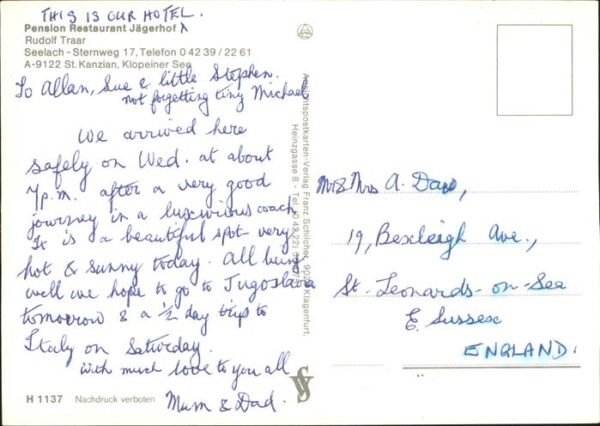 THIS IS OUR HOTEL.
Pension Restaurant Jägerhof
Rudolf Traar
Seelach - Sternweg 17, Telefon 0 42 39 / 22 61
A-9122 St. Kanzian, Klopeiner See
To Allan, Sue & little Stephen.
not forgetting tiny Michael
We arrived here
safely on Wed. at about
7p.m. after a very good
journey in a luxurious coach
It is a beautiful spot - very
hot & sunny today. All being
well we hope to go to Jugoslavia
tomorrow & a ½ day trip to
Italy on Saturday.
with much love to you all
Mum & Dad.
H 1137 Nachdruck verboten
Ansichtspostkarten-Verlag Franz Schilcher, Klagenfurt,
Heinzgasse 8 - Tel.
Mr & Mrs A.
19, Bexleigh Ave.,
St-Leonards-on-Sea
E. Sussex
ENGLAND.